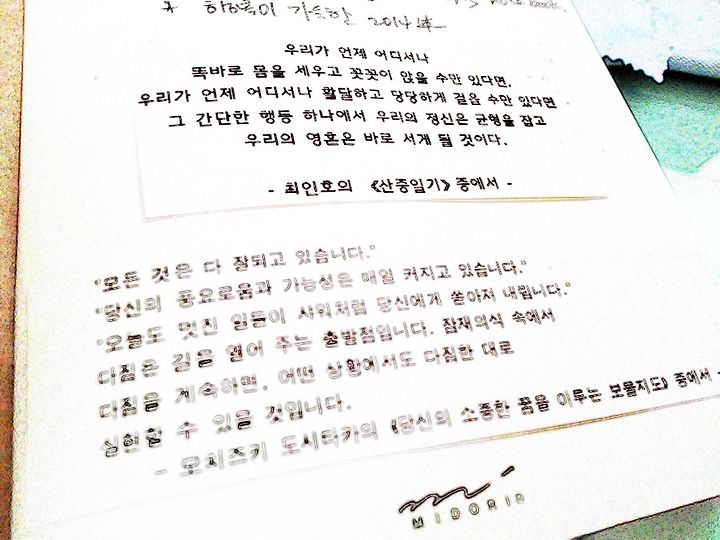 * 행복이 가득한 2014年
우리가 언제 어디서나
똑바로 몸을 세우고 꼿꼿이 앉을 수만 있다면,
우리가 언제 어디서나 활달하고 당당하게 걸을 수만 있다면
그 간단한 행동 하나에서 우리의 정신은 균형을 잡고
우리의 영혼은 바로 서게 될 것이다.
- 최인호의 《산중일기》 중에서 -
"모든 것은 다 잘되고 있습니다."
"당신의 풍요로움과 가능성은 매일 커지고 있습니다."
"오늘도 멋진 일들이 샤워처럼 당신에게 쏟아져 내립니다."
다짐은 길을 열어 주는 출발점입니다. 잠재의식 속에서
다짐을 계속하면, 어떤 상황에서도 다짐한 대로
실현할 수 있을 것입니다.
- 모치즈키 도시타카의 《당신의 소중한 꿈을 이루는 보물지도》 중에서 -
MIDORI